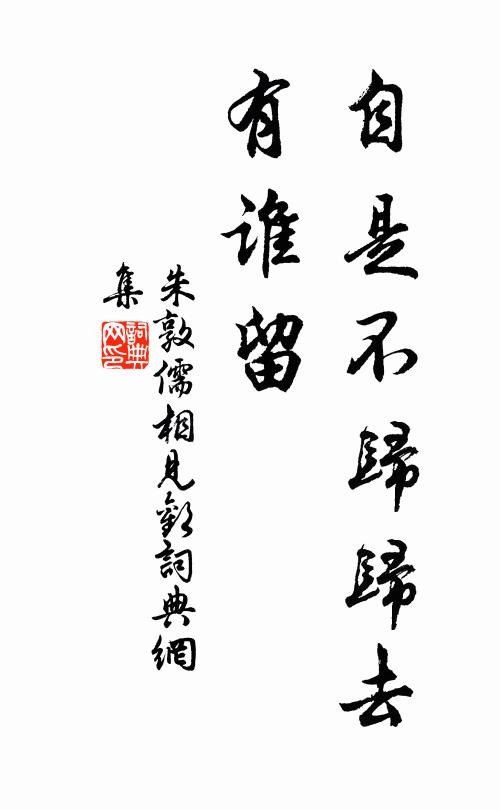 自是不歸歸去
有誰留
朱敦儒相見歡詞典網
集
詞典
网印